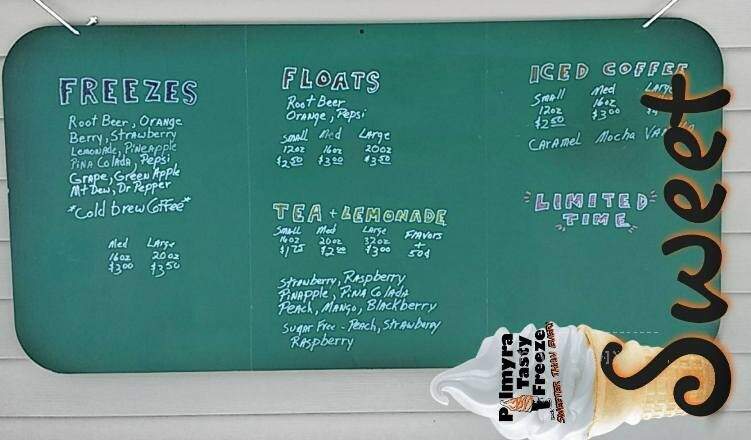 FREEZES
Root Beer, Orange
Berry, Strawberry
Lemonade, Pineapple
Pina Colada, Pepsi
Grape, Green Apple
Mt Dew, Dr Pepper
*Cold brew Coffee*
Med Large
16oz 20oz
$3.00 $3.50
FLOATS
Root Beer
Orange, Pepsi
Small Med Large
12oz 16oz 20oz
$2.50 $3.00 $3.50
TEA + LEMONADE
Small Med Large Flavors
16oz 20oz 32oz +
$1.75 $3.00 50¢
Strawberry, Raspberry
Pinapple, Pina Colada
Peach, Mango, Blackberry
Sugar Free - Peach, Strawberry
Raspberry
ICED COFFEE
Small Med Large
12oz 16oz
$2.50 $3.00
Caramel Mocha
LIMITED
TIME
Sweet
Palmyra
Tasty
Freeze
SWEETER THAN EVER!